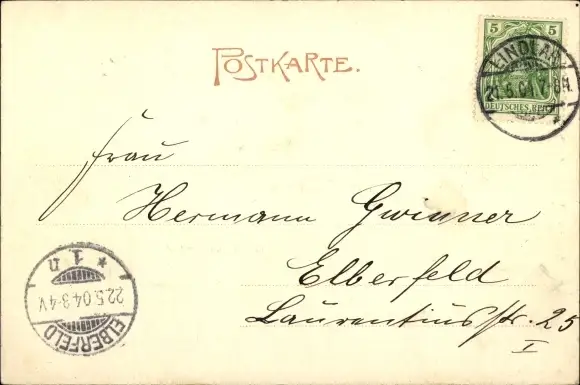 POSTKARTE.
5 5
DEUTSCHES REICH
LINDLAR
21.5.04 7-8N.
Frau
Hermann Gwinner
Elberfeld
Laurentiusstr. 25
I
ELBERFELD
22.5.04.3-4V
* 1 n